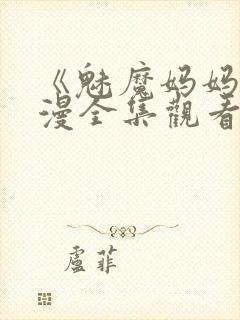 《魅魔妈妈
漫全集觀看
盧菲